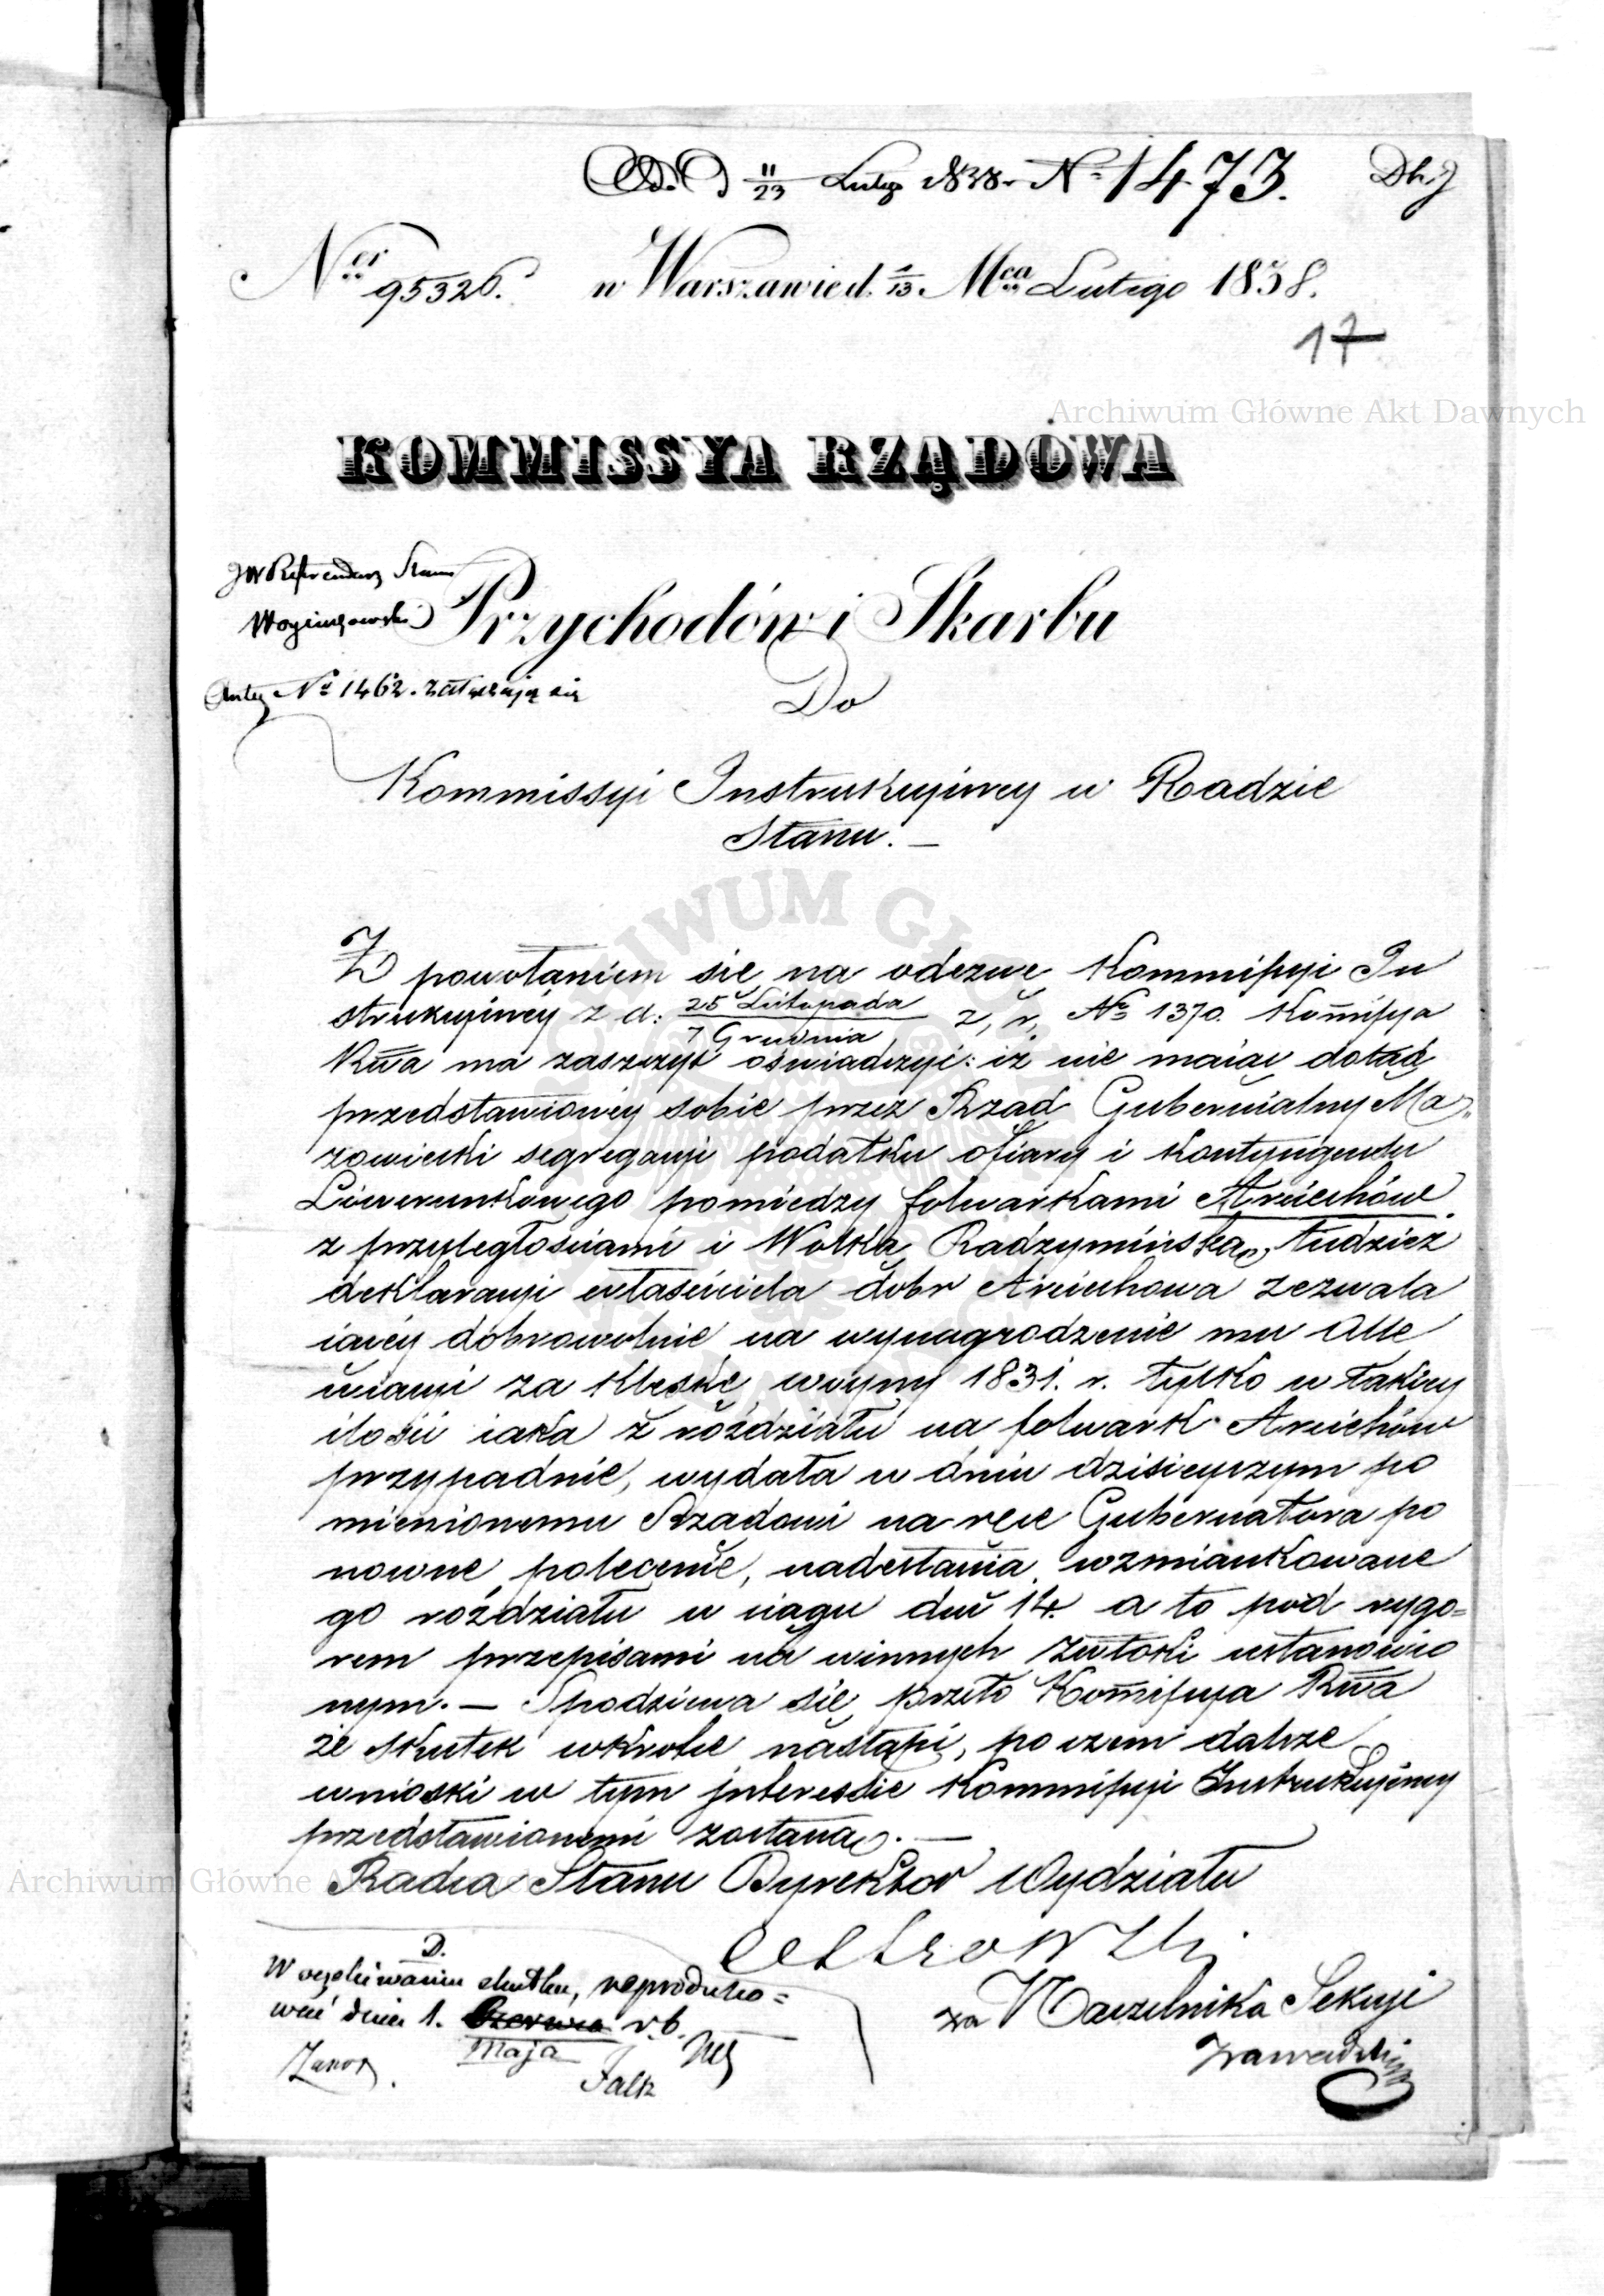 D. 11/23 Lutego 1838 r. No 1473.
Nr 95326. w Warszawie d. 1/13 Mca Lutego 1838.
17
Archiwum Główne Akt Dawnych
KOMMISSYA RZĄDOWA
JW Referendarz Stanu
Przychodów i Skarbu
Antez No 1462. załączają się
Do
Kommissyi Instrukcyjney w Radzie
Stanu. —
Z powołaniem się na odezwę Kommissyi In
strukcyjney z d: 25 Listopada / 7 Grudnia z, r, No 1370. Kommissya
Rwa ma zaszczyt oświadczyć: iż nie maiąc dotąd
przedstawioney sobie przez Rząd Gubernialny Ma-
zowiecki segregacyi podatku ofiary i kontyngensu
Liwerunkowego pomiędzy folwarkami Arciechów
z przyległościami i Wolką Radzymińską, tudzież
deklaracyi właściciela dobr Arciechowa zezwala
iącéy dobrowolnie na wynagrodzenie mu Alle
wiacyi za klęskę woyny 1831. r. tylko w takiey
ilości iaka z rozdziału na folwark Arciechów
przypadnie, wydała w dniu dzisieyszym po
mienionemu Rządowi na ręce Gubernatora po
nowne polecenie, nadesłania wzmiankowane
go rozdziału w ciągu dni 14. a to pod rygo=
rem przepisami na winnych zwłoki ustanowio
nym. — Spodziewa się przeto Kommissya Rwa
że skutek wkrótce nastąpi, po czem dalsze
wnioski w tym interessie Kommissyi Instrukcyjney
przedstawionemi zostaną. —
Archiwum Główne A
Radca Stanu Dyrektor Wydziału
D.
W oczekiwaniu skutku, reproduko=
wać dnia 1. Czerwca r. b.
Maja
Falk
za Naczelnika Sekcyi
Zawadzki